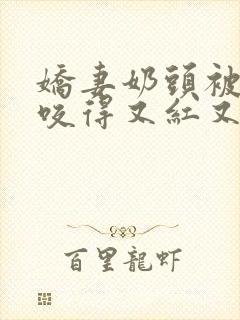 嬌妻奶頭被
咬得又紅又
百里龍虾